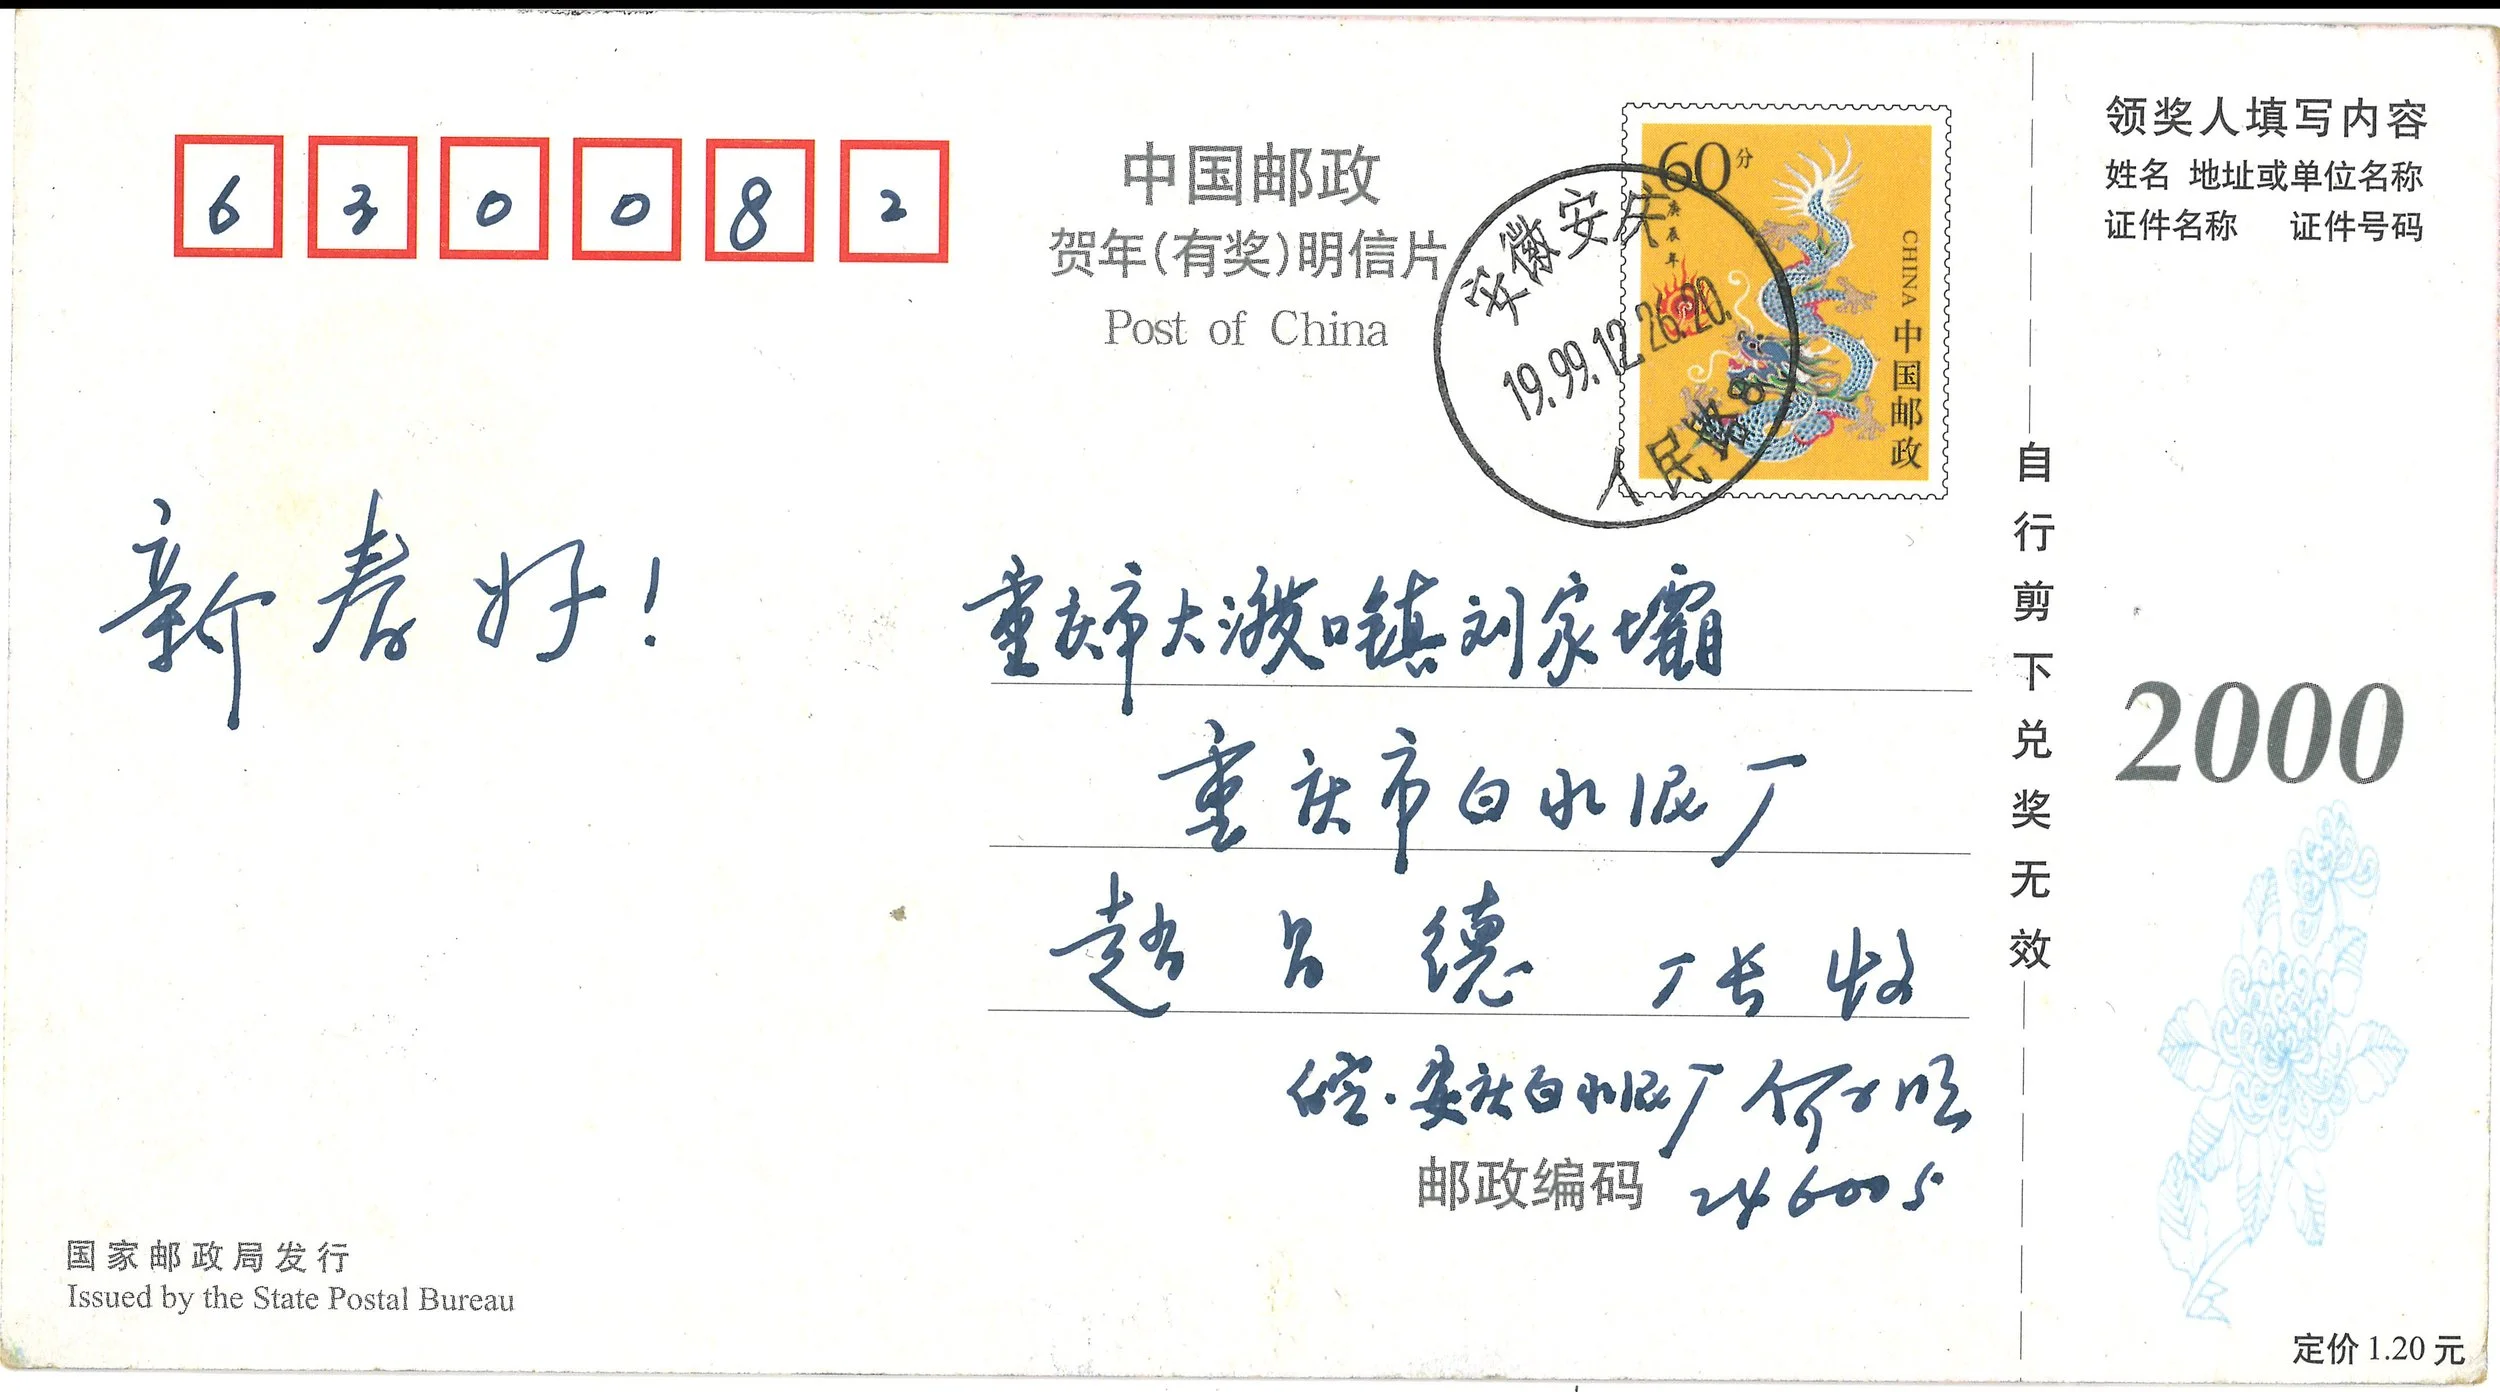 630082
中国邮政
贺年(有奖)明信片
Post of China
60分
庚辰年
CHINA
中国邮政
安徽安庆
19.99.12.26.20.
人民路8
新春好!
重庆市大溪口镇刘家壩
重庆市白水泥厂
趙昌德 厂长收
皖·安庆白水泥厂何
邮政编码 246005
国家邮政局发行
Issued by the State Postal Bureau
自行剪下兑奖无效
领奖人填写内容
姓名 地址或单位名称
证件名称 证件号码
2000
定价 1.20 元